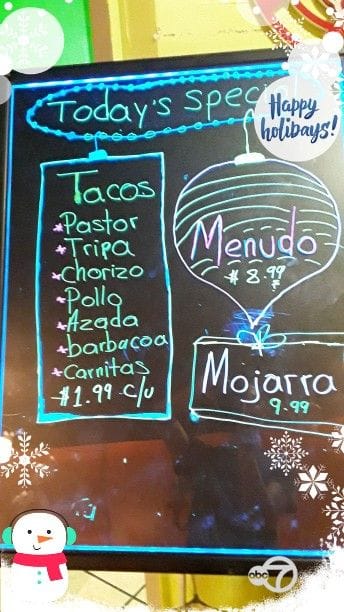 Today's Speci
Happy
holidays!
Tacos
*Pastor
*Tripa
*Chorizo
*Pollo
*Azada
*barbacoa
*Carnitas
$1.99 c/u
Menudo
$8.99
Mojarra
9.99
abc 7